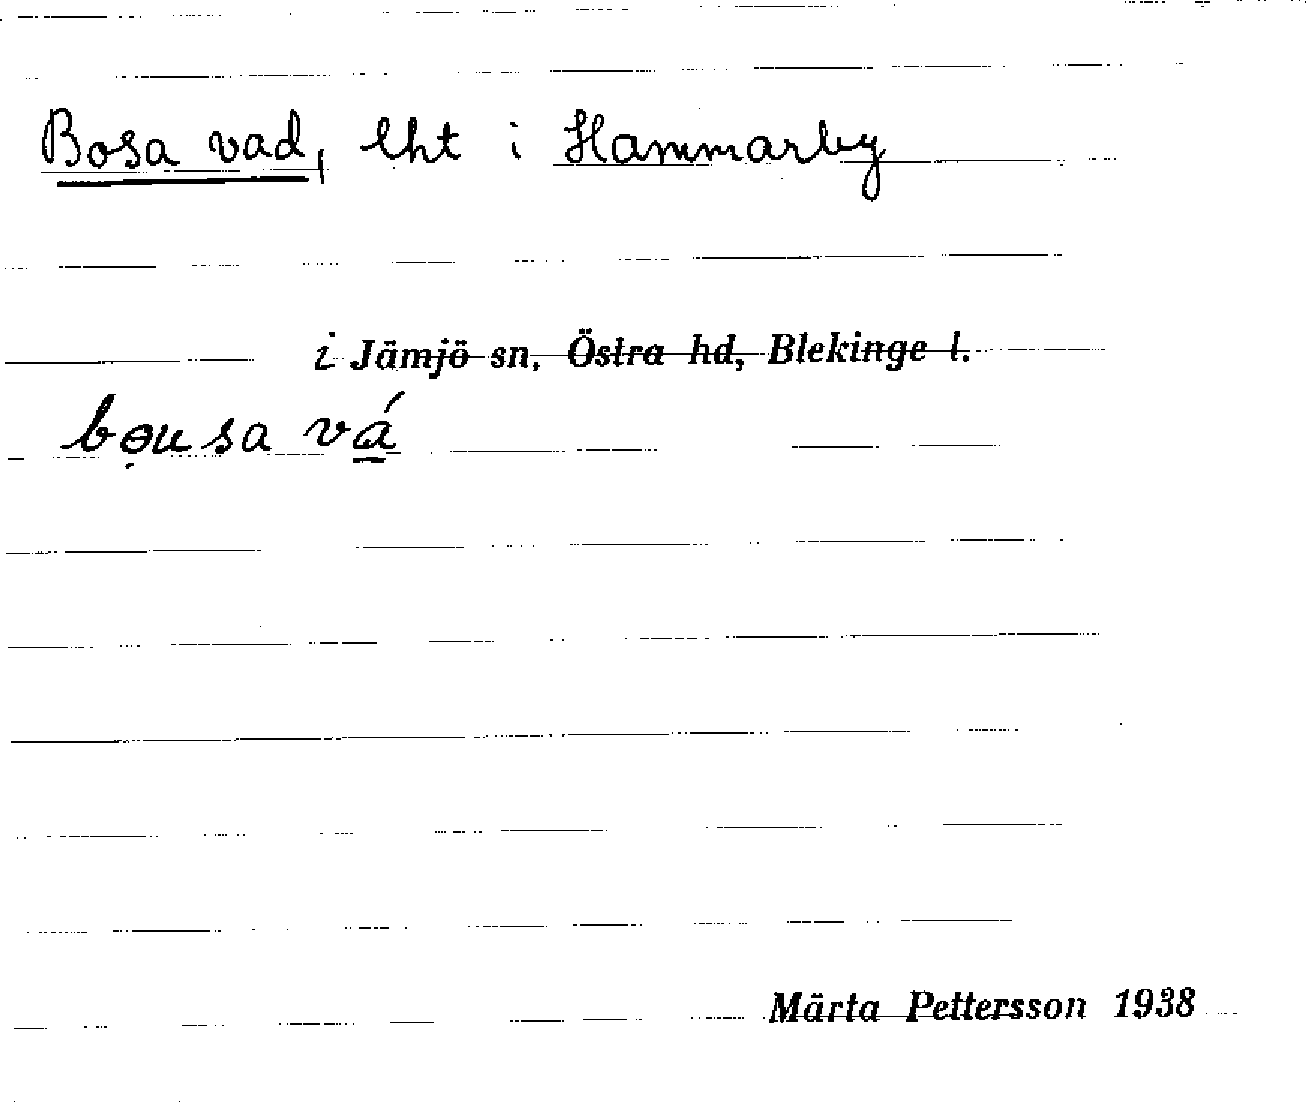 Bosa vad, lht i Hammarby
i Jämjö sn, Östra hd, Blekinge l.
bọusa vá̲
Märta Pettersson 1938